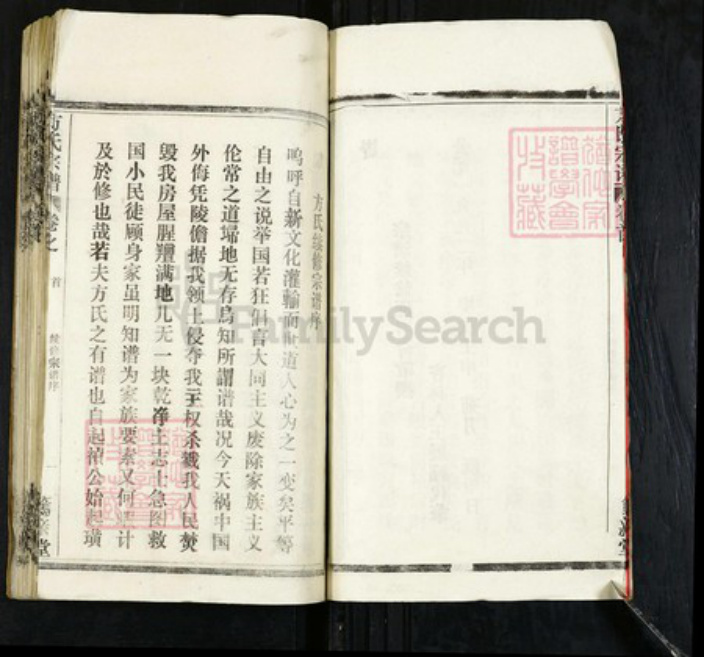 方氏续修宗谱序
呜呼自新文化灌输而世道人心为之一变矣平等
自由之说举国若狂倡言大同主义废除家族主义
伦常之道埽地无存乌知所谓谱哉况今天祸中国
外侮凭陵僭据我领土侵夺我主权杀戮我人民焚
毁我房屋腥羶满地几无一块乾净土志士急图救
国小民徒顾身家虽明知谱为家族要素又何 计
及於修也哉若夫方氏之有谱也自起祯公始起璜
方氏宗谱 卷之首 续修宗谱序 一 堂
FamilySearch